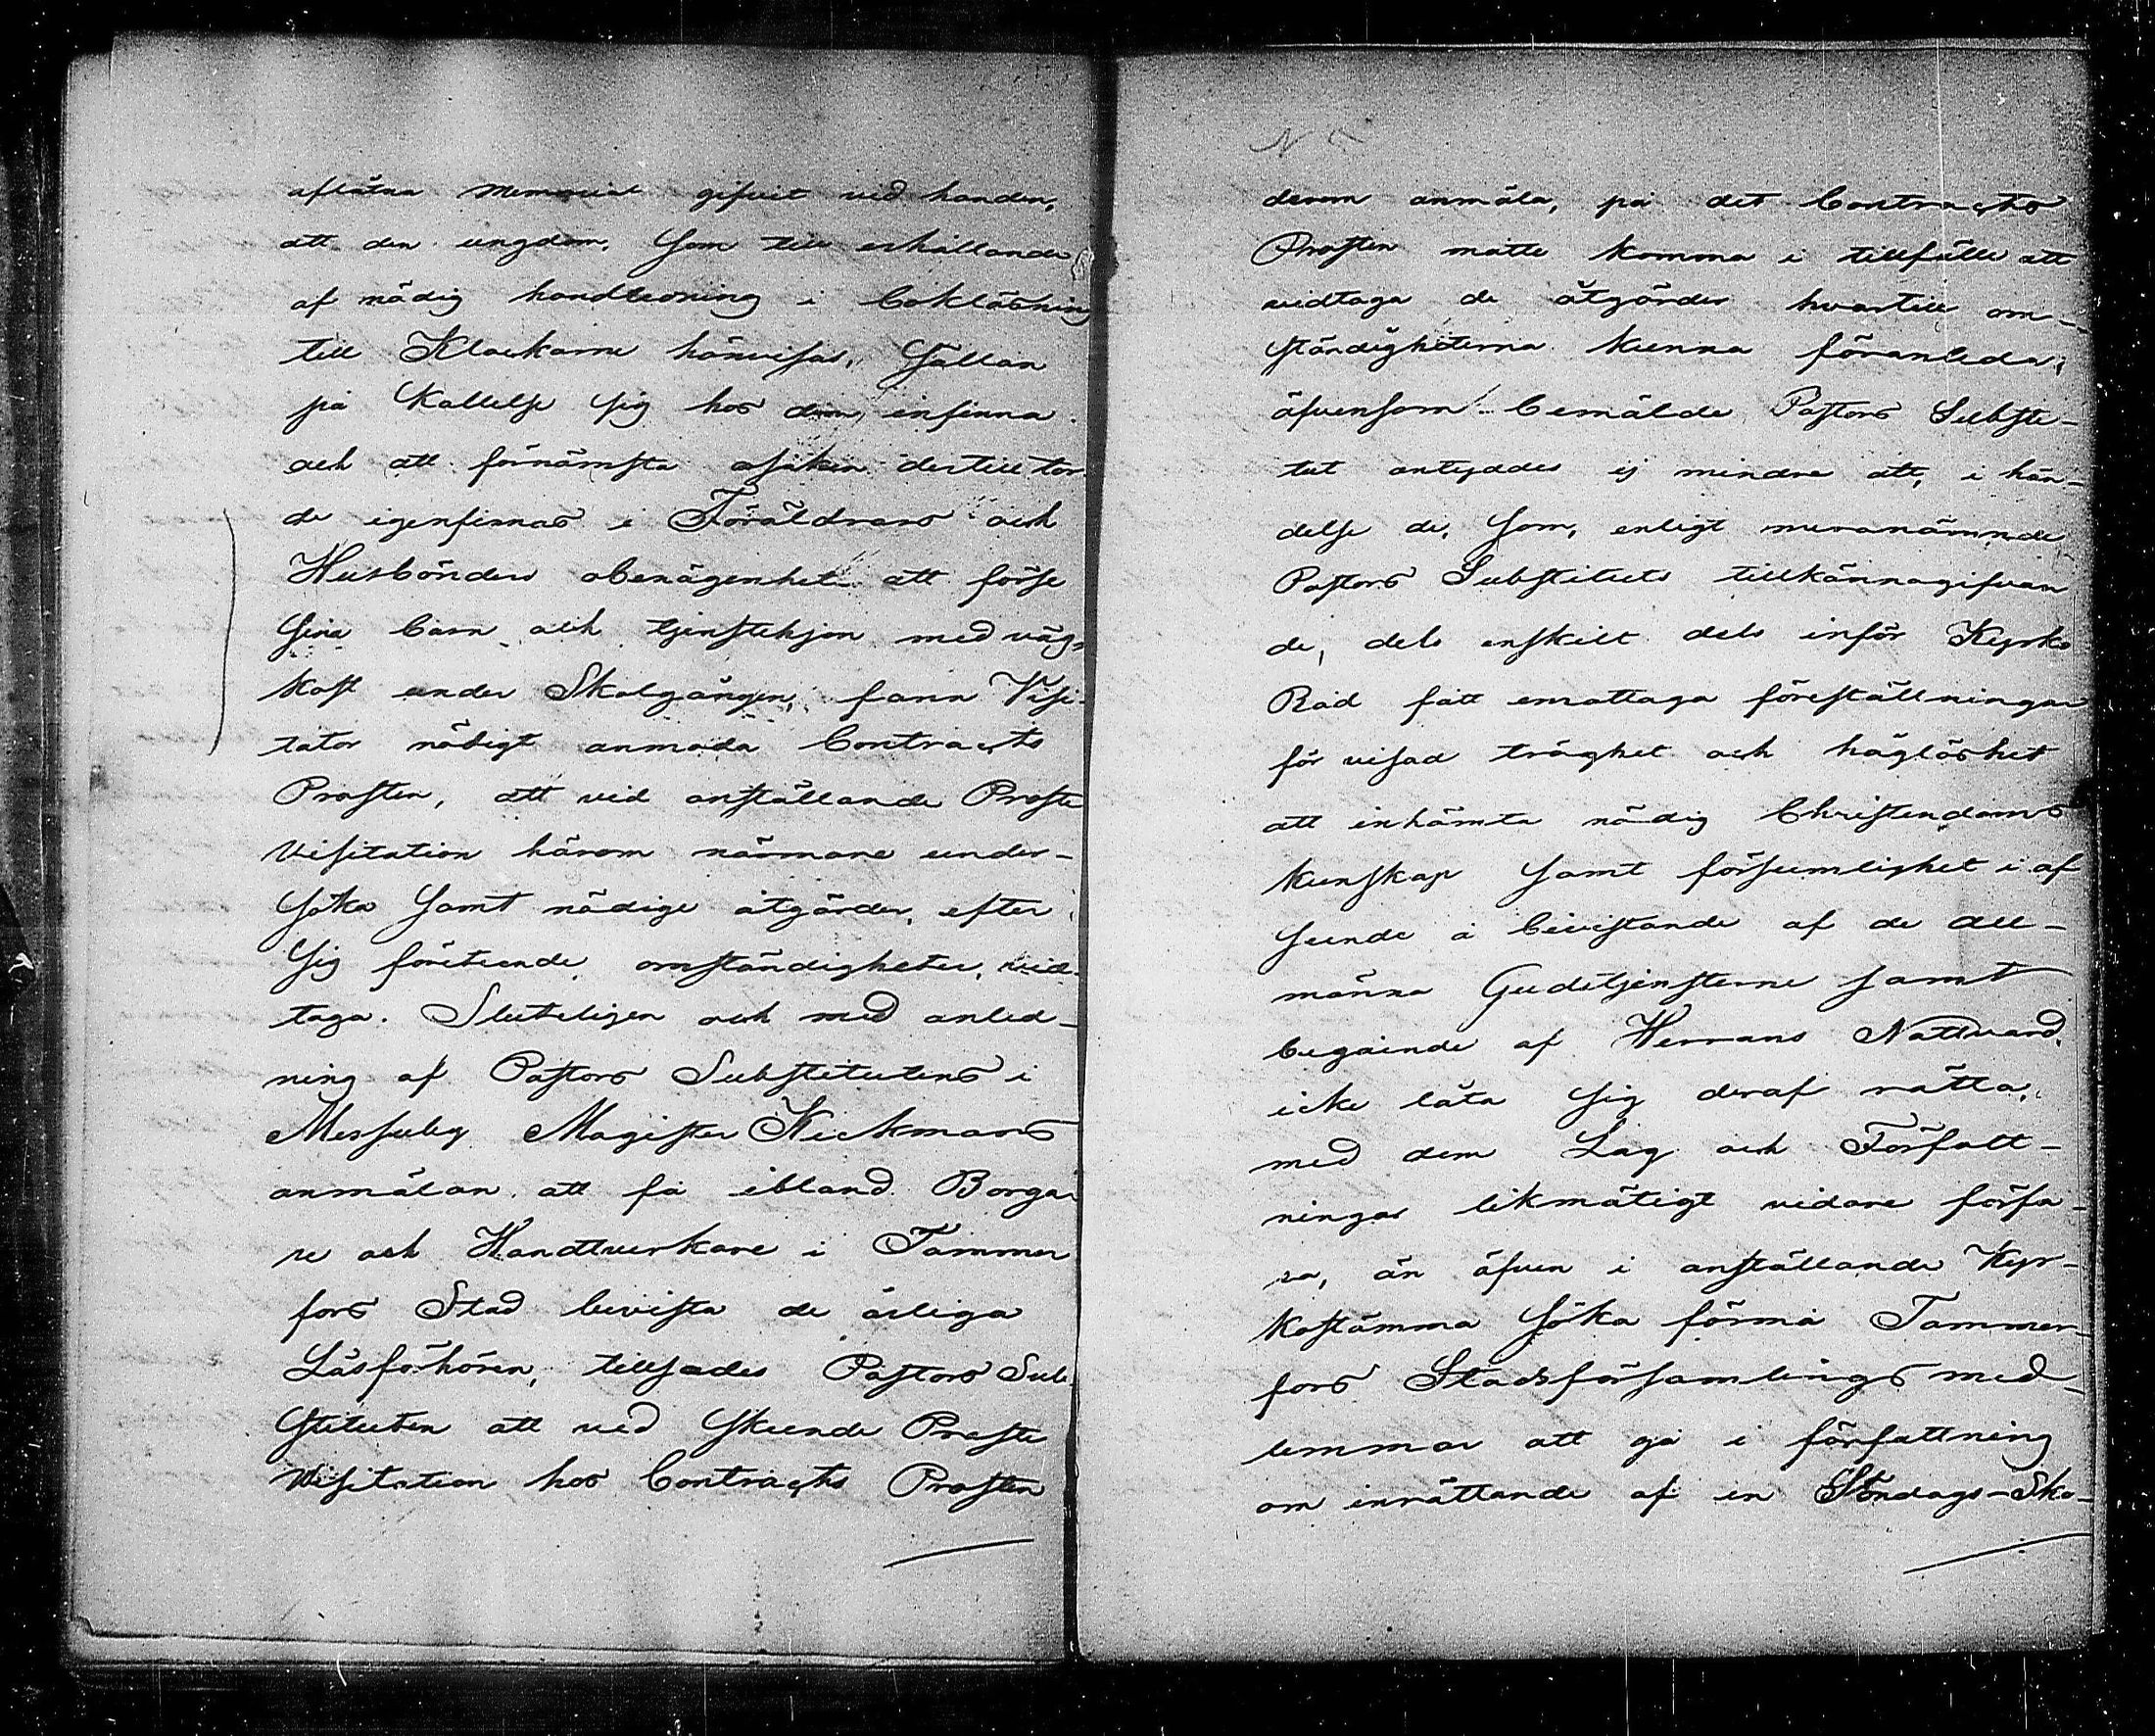 aflåtna Memorial gifvit vid handen,
att den ungdom, som till erhållande
af nödig handledning i bokläsning
till Klockarne hänvisas, sällan
på kallelse sig hos dem infinna
och att förnämsta orsaken dertill tor-
de igenfinnas i Föräldrars och
Husbönders obenägenhet att förse
sina barn och tjenstehjon med väg-
kost under Skolgången, fann Visi-
tator nödigt anmoda Contracts
Prosten, att vid anställande Proste
Visitation härom närmare under-
söka samt nödige åtgärder, efter
sig företeende omständigheter, vid-
taga. Sluteligen och med anled-
ning af Pastors Substitutens i
Messuby Magister Kickmans
anmälan att få ibland Borga-
re och Handtverkare i Tammer
fors Stad bevista de årliga
Läsförhören, tillsades Pastors Sub
stituten att vid skeende Proste
Visitation hos Contracts Prosten
derom anmäla, på det Contracts
Prosten måtte komma i tillfälle att
vidtaga de åtgärder hvartill om-
ständigheterna kunna föranleda;
äfvensom bemälde Pastors Substi-
tut antyddes ej mindre att, i hän-
delse de, som, enligt meranämnde
Pastors Substituts tillkännagifvan
de, dels enskilt dels inför Kyrko
Råd fått emottaga föreställningar
för visad tröghet och håglöshet
att inhämta nödig Christendoms
kunskap samt försumlighet i af
seende å bevistande af de all-
männa Gudstjensterne samt
begående af Herrans Nattvard,
icke låta sig deraf rätta,
med dem Lag och Författ-
ningar likmätigt vidare förfa-
ra, än äfven i anställande Kyr-
kostämma söka förmå Tammer-
fors Stadsförsamlings med-
lemmar att gå i författning
om inrättande af en Söndags-Sko-